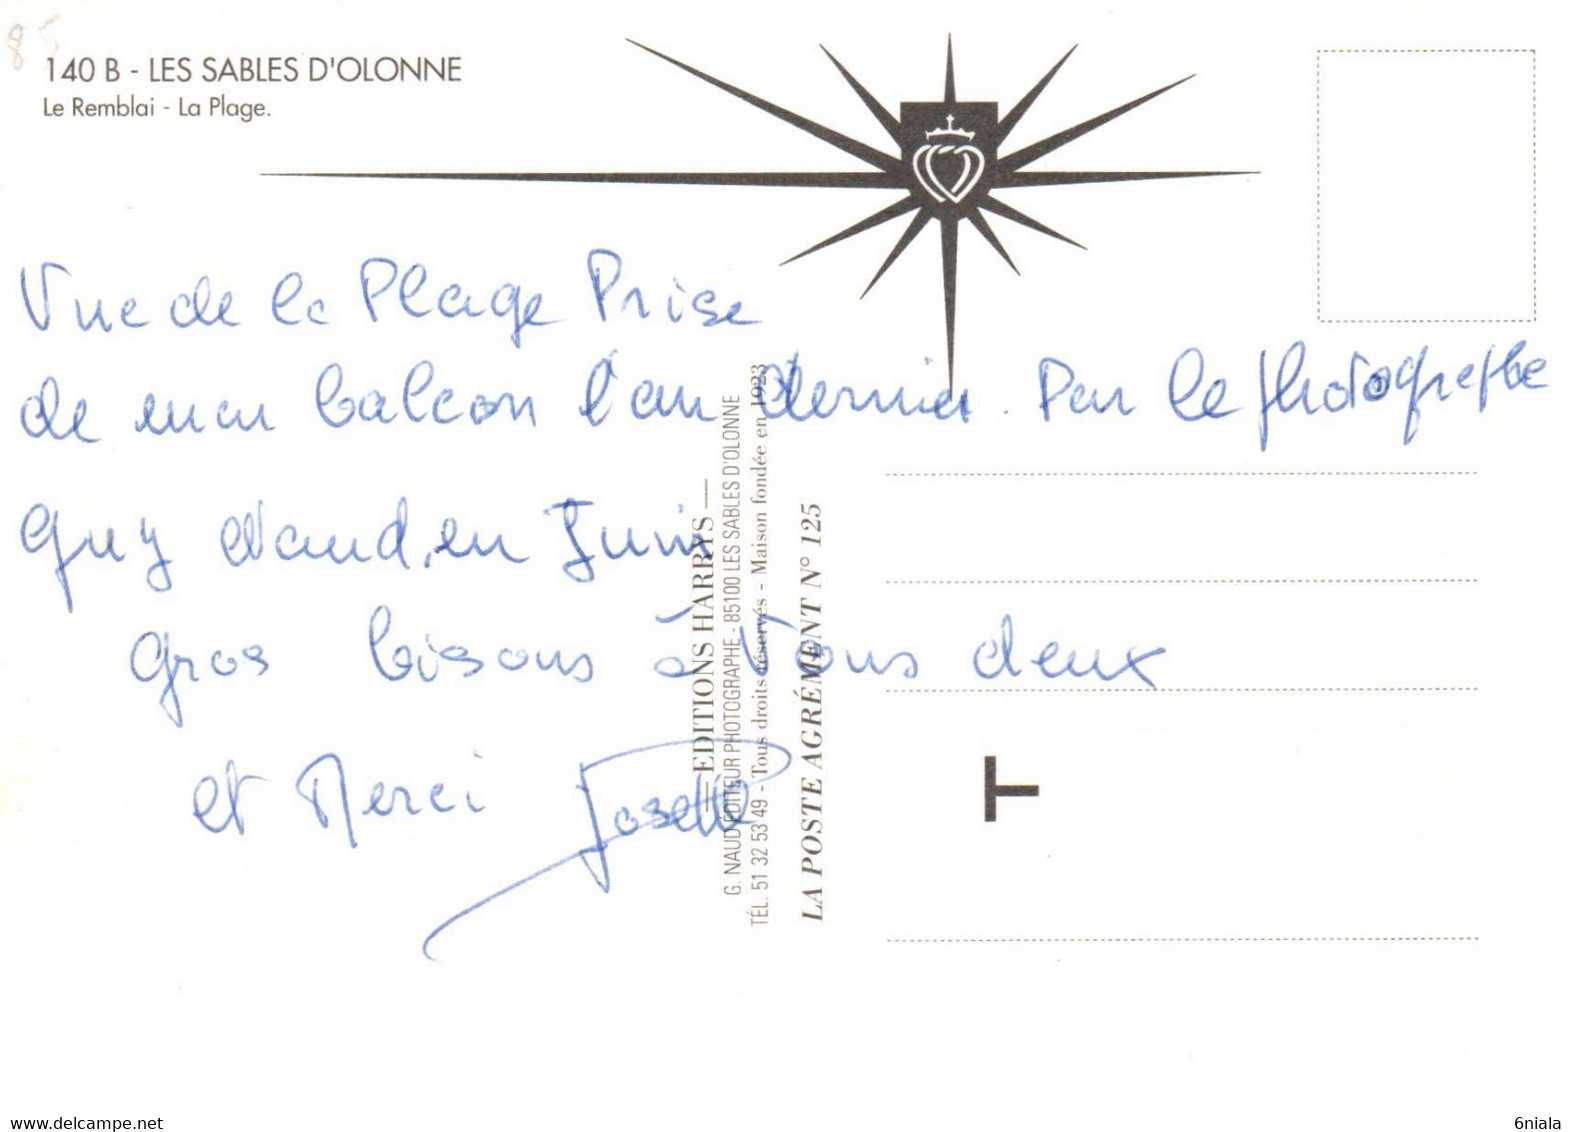 85
140 B - LES SABLES D'OLONNE
Le Remblai - La Plage.
Vue de la Plage Prise
de mon balcon l'an dernier. Par le photographe
Guy Naud, en Juin
Gros bisous à Vous deux
et Merci Josette
EDITIONS HARRYS
G. NAUD EDITEUR PHOTOGRAPHE - 85100 LES SABLES D'OLONNE
TÉL. 51 32 53 49 - Tous droits réservés - Maison fondée en 1923
LA POSTE AGRÉMENT N° 125
T
https://www.delcampe.net
6niala